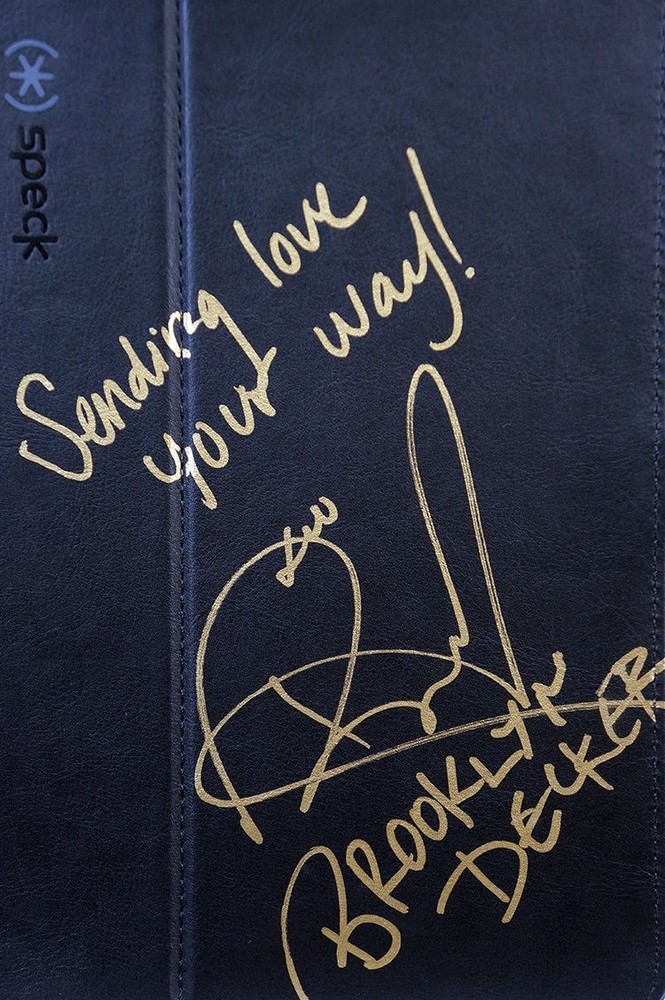 speck
Sending love
your way!
BROOKLYN
DECKER